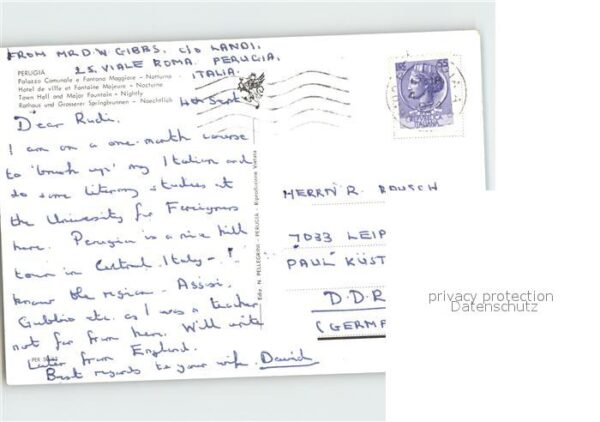 FROM MR D.W GIBBS, C/O LANDI,
25, VIALE ROMA, PERUGIA,
ITALIA.
PERUGIA
Palazzo Comunale e Fontana Maggiore - Notturno
Hotel de ville et Fontaine Majeure - Nocturne
Town Hall and Major Fountain - Nightly
Rathaus und Grosserer Springbrunnen - Naechtlich
4th Sept.
Dear Rudi,
I am on a one-month course
to 'brush up' my Italian and
do some literary studies at
the University for Foreigners
here. Perugia is a nice hill
town in Central Italy - I
know the region - Assisi,
Gubbio etc. as I was a teacher
not far from here. Will write
later from England.
Best regards to your wife, David
PER
Ediz. N. PELLEGRINI - PERUGIA - Riproduzione Vietata
55
REPUBBLICA
ITALIANA
HERRN R. RAUSCH
7033 LEIP
PAUL KÜST
D.D.R
(GERMA
privacy protection
Datenschutz